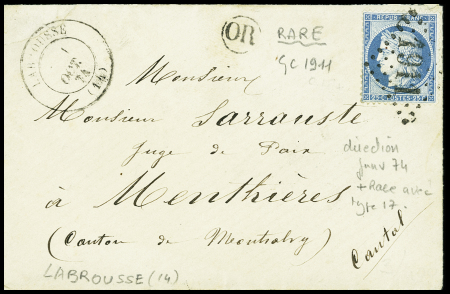 LABROUSSE (14)
1
OCT.
74
OR
RARE
GC 1911
REPUB. FRANC.
25 C. POSTES 25 C.
1911
Monsieur
Monsieur Sarrauste
Juge de Paix
à Menthières
(Canton de Montsalvy)
Cantal
direction
Janv 74
+ Rare avec
type 17
LABROUSSE (14)